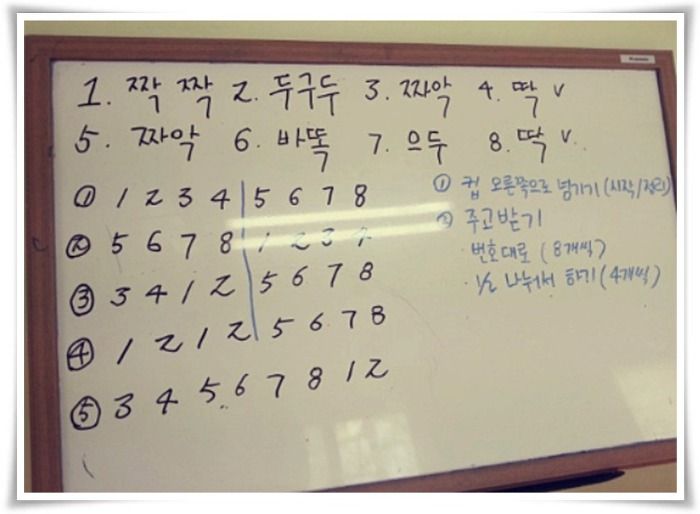 1. 짝 짝 2. 두구두 3. 짜악 4. 딱 v
5. 짜악 6. 바뚝 7. 으두 8. 딱 v.
① 1 2 3 4 | 5 6 7 8
② 5 6 7 8 | 1 2 3 4
③ 3 4 1 2 | 5 6 7 8
④ 1 2 1 2 | 5 6 7 8
⑤ 3 4 5 6 7 8 1 2
① 컵 오른쪽으로 넘기기 (시작/정리)
② 주고받기
· 번호대로 (8개씩)
· 1/2 나눠서 하기 (4개씩)